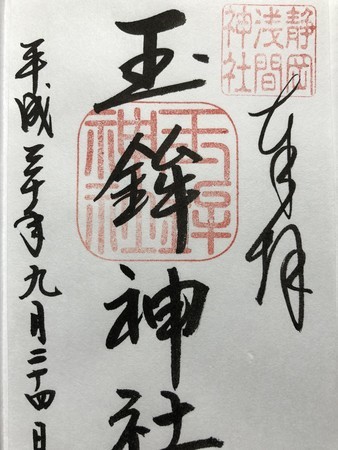 奉拝
静岡
浅間
神社
玉鉾神社
玉鉾
神社
平成三十年九月二十四日